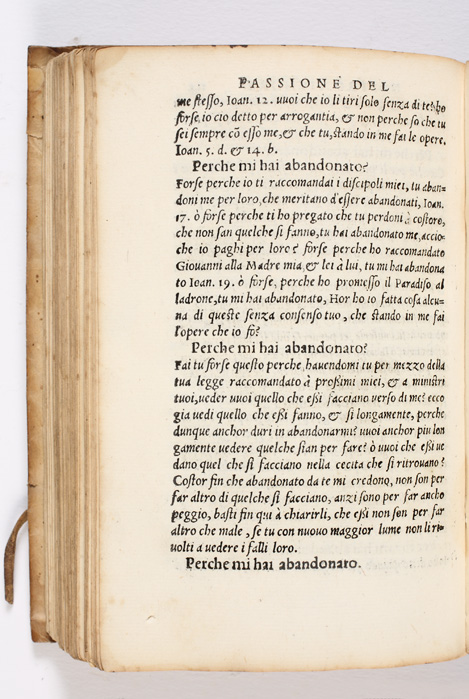 PASSIONE DEL
me stesso, Ioan. 12. uuoi che io li tiri solo senza di te? ho
forse, io cio detto per arrogantia, & non perche so che tu
sei sempre cō esso me, & che tu, stando in me fai le opere.
Ioan. 5. d. & 14. b.
Perche mi hai abandonato?
Forse perche io ti raccomandai i discipoli miei, tu aban=
doni me per loro, che meritano d'essere abandonati, Ioan.
17. ò forse perche ti ho pregato che tu perdoni à costoro,
che non san quelche si fanno, tu hai abandonato me, accio=
che io paghi per loro? forse perche ho raccomandato
Giouanni alla Madre mia, & lei à lui, tu mi hai abandona
to Ioan. 19. ò forse, perche ho promesso il Paradiso al
ladrone, tu mi hai abandonato, Hor ho io fatta cosa alcu=
na di queste senza consenso tuo, che stando in me fai
l'opere che io fò?
Perche mi hai abandonato?
Fai tu forse questo perche, hauendomi tu per mezzo della
tua legge raccomandato à prossimi miei, & a ministri
tuoi, ueder uuoi quello che essi facciano uerso di me? ecco
gia uedi quello che essi fanno, & si longamente, perche
dunque anchor duri in abandonarmi? uuoi anchor piu lon
gamente uedere quelche sian per fare? ò uuoi che essi ue
dano quel che si facciano nella cecita che si ritrouano?
Costor fin che abandonato da te mi credono, non son per
far altro di quelche si facciano, anzi sono per far ancho
peggio, basti fin quì à chiarirli, che essi non son per far
altro che male, se tu con nuouo maggior lume non li ri=
uolti a uedere i falli loro.
Perche mi hai abandonato.